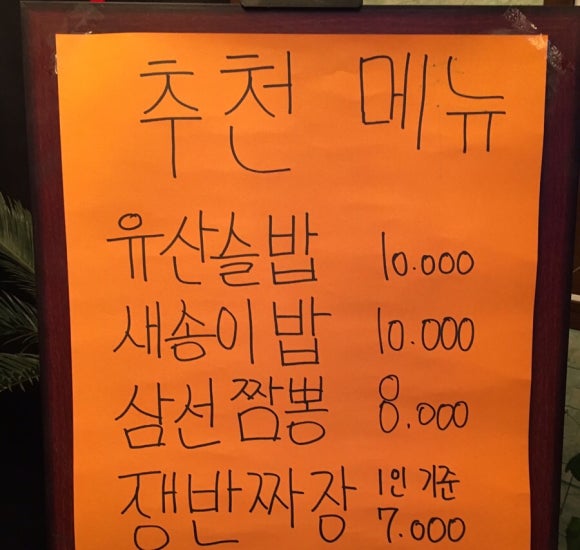 추천 메뉴
유산슬밥 10.000
새송이밥 10.000
삼선짬뽕 8.000
쟁반짜장 1인 기준
7.000